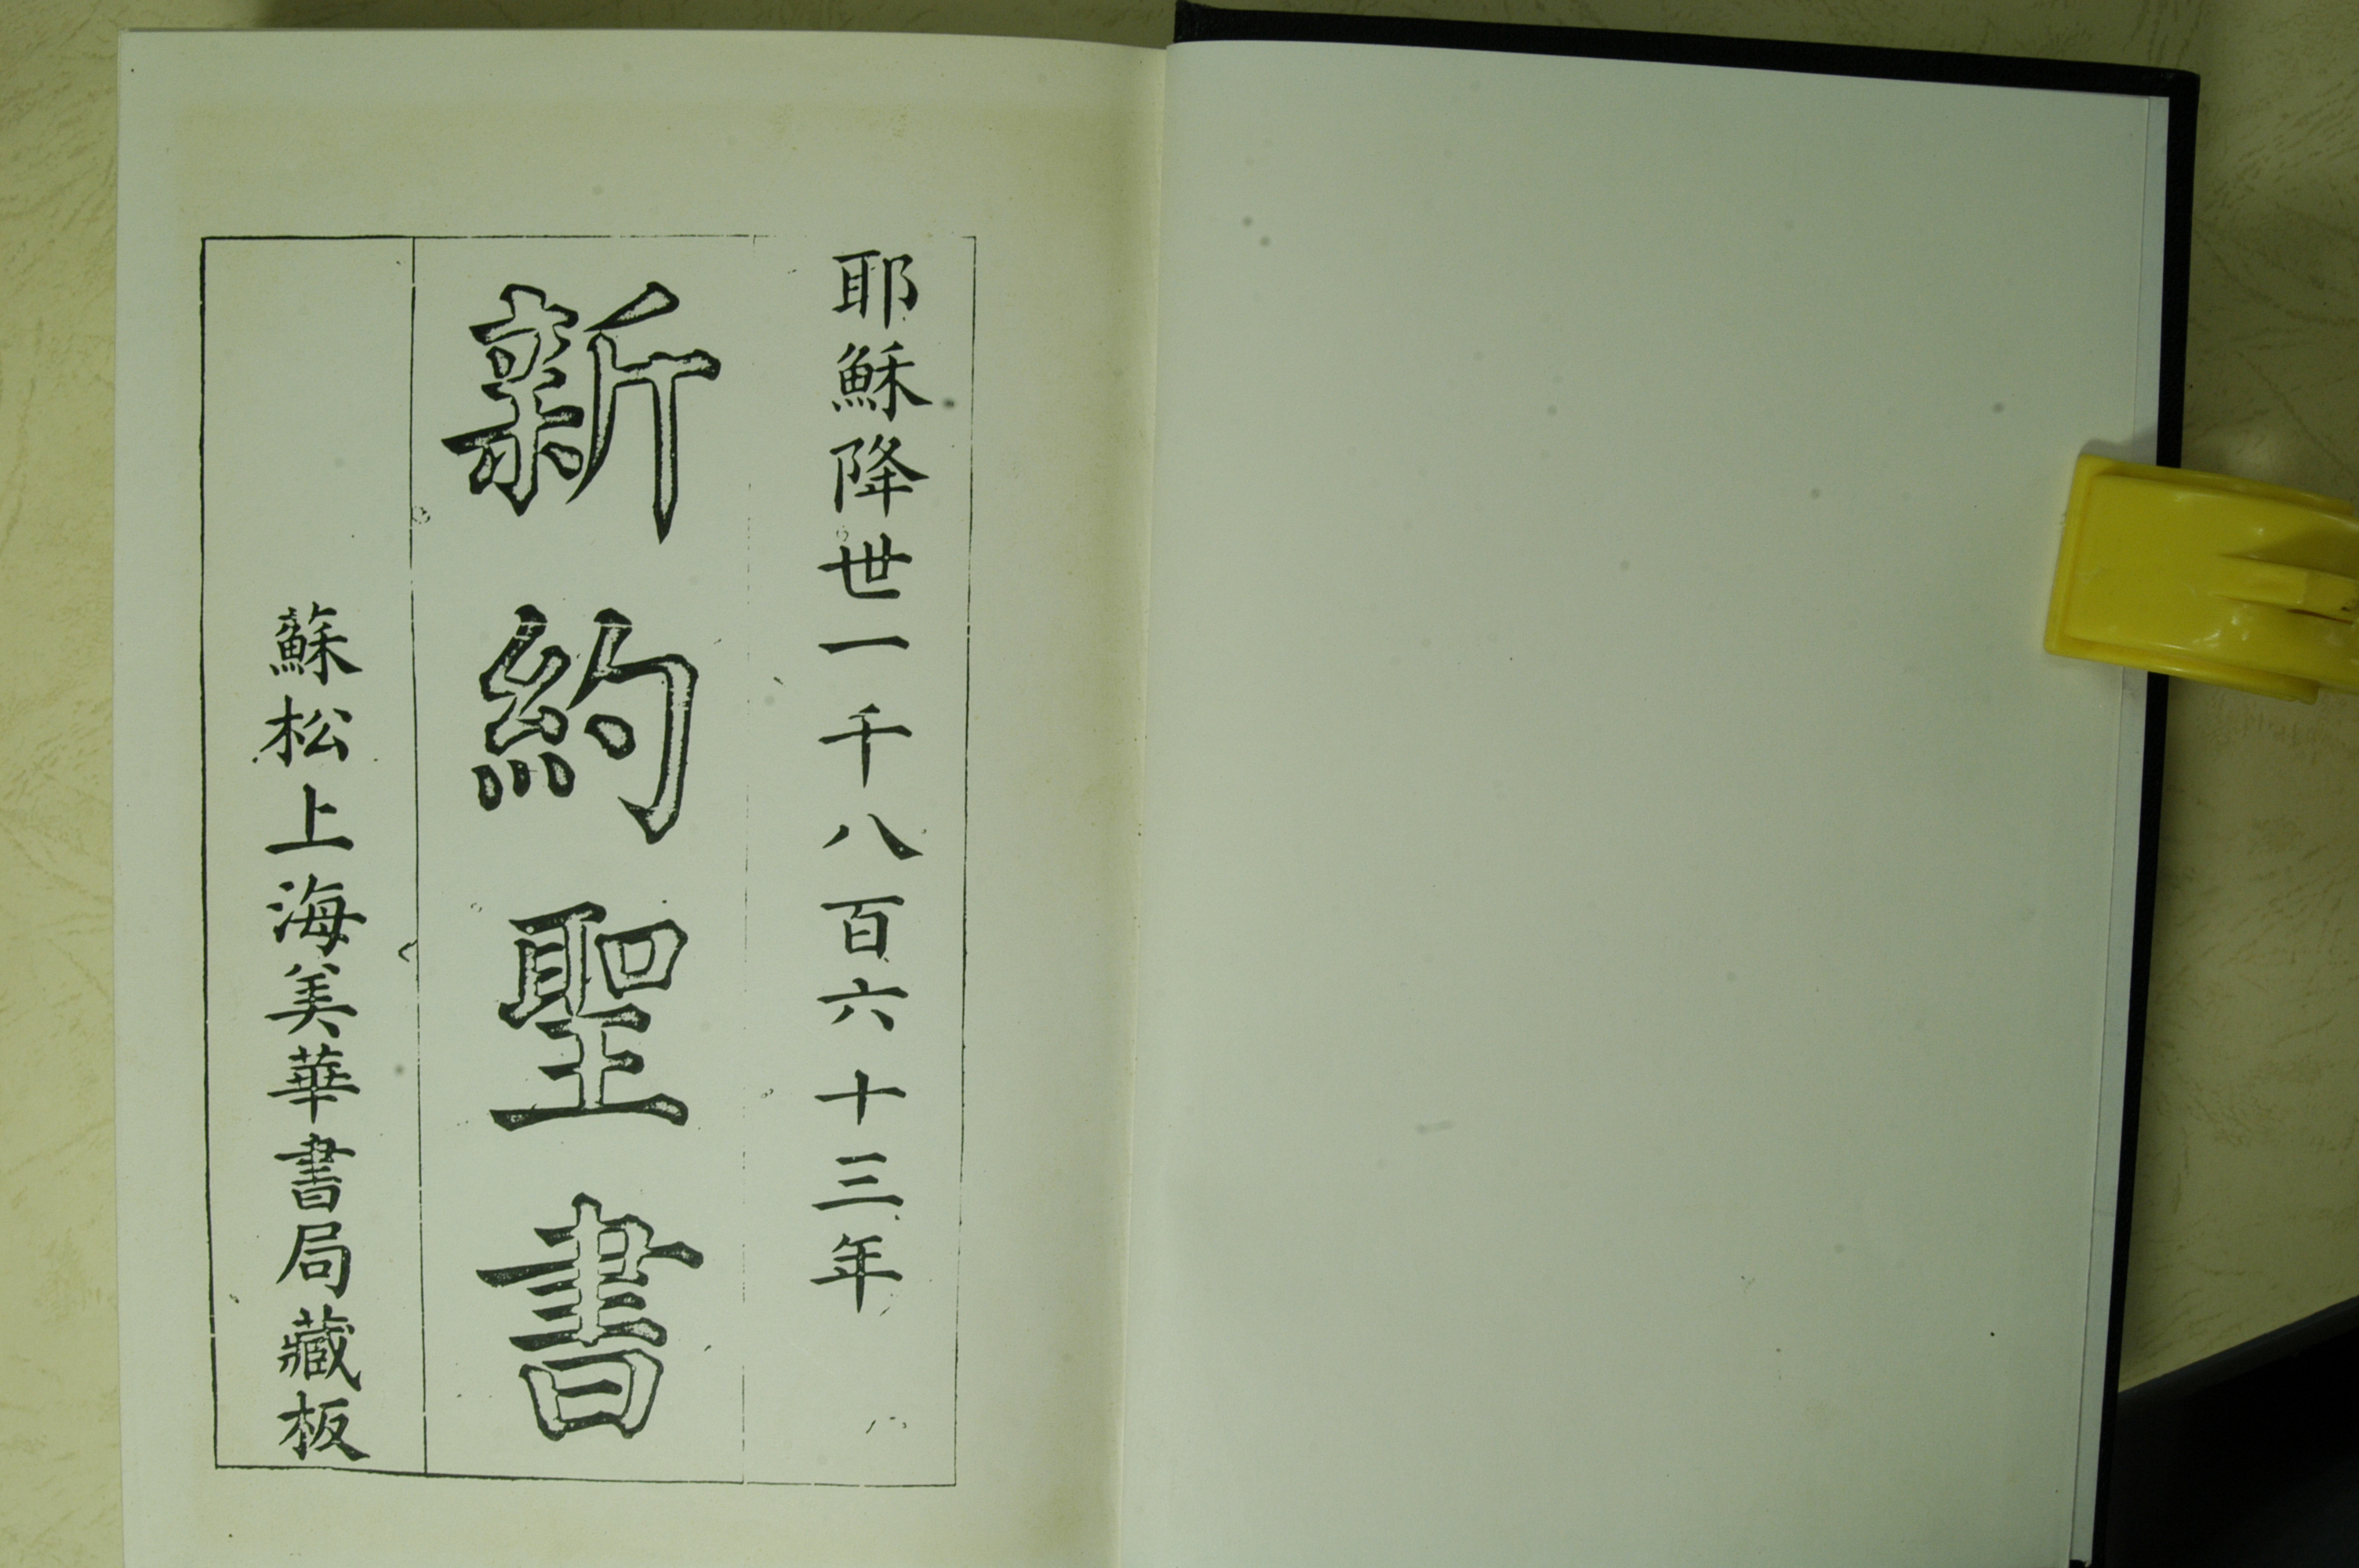 耶穌降世一千八百六十三年
新約聖書
蘇松上海美華書局藏板